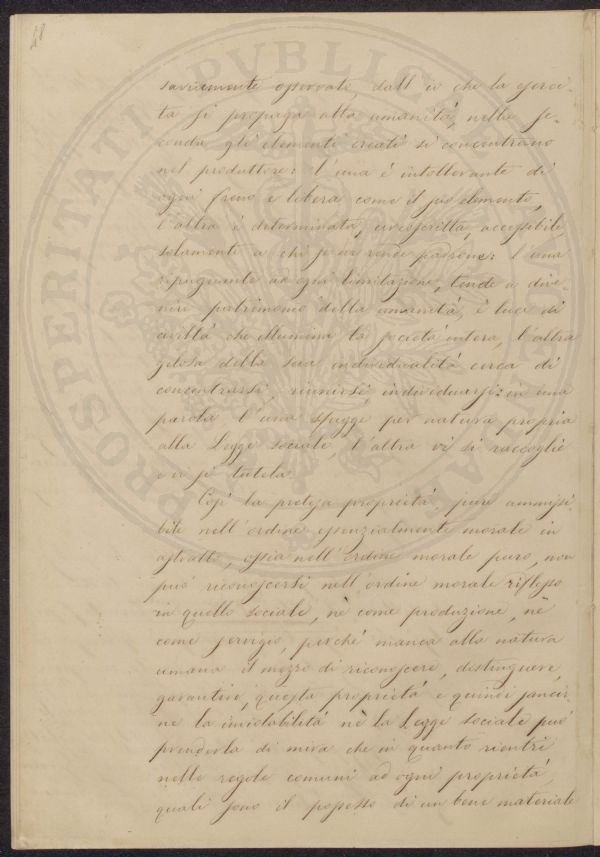 saviamente osservate, dall' io che la eserci-
ta si propaga alla umanità, nella se-
conda gli elementi creati si concentrano
nel produttore: l'una è intollerante di
ogni freno e libera come il suo elemento,
l'altra è determinata, circoscritta, accessibile
solamente a chi se ne rende padrone: l'una
ripugnante ad ogni limitazione, tende a dive-
nire patrimonio della umanità, è luce di
civiltà che illumina la società intera, l'altra
gelosa della sua individualità cerca di
concentrarsi, riunirsi individuarsi: in una
parola l'una sfugge per natura propria
alla Legge sociale l'altra vi si raccoglie
e vi si tutela.
Così la pretesa proprietà, pure ammissi-
bile nell'ordine essenzialmente morale in
astratto, ossia nell'ordine morale puro, non
può riconoscersi nell'ordine morale riflesso
in quello sociale, nè come produzione, nè
come servigio, perchè manca alla natura
umana il mezzo di riconoscere, distinguere,
garantire, questa proprietà e quindi sancir-
ne la inviolabilità nè la Legge sociale può
prenderla di mira che in quanto rientri
nelle regole comuni ad ogni proprietà,
quali sono il possesso di un bene materiale
PROSPERITATI PVBLICAE